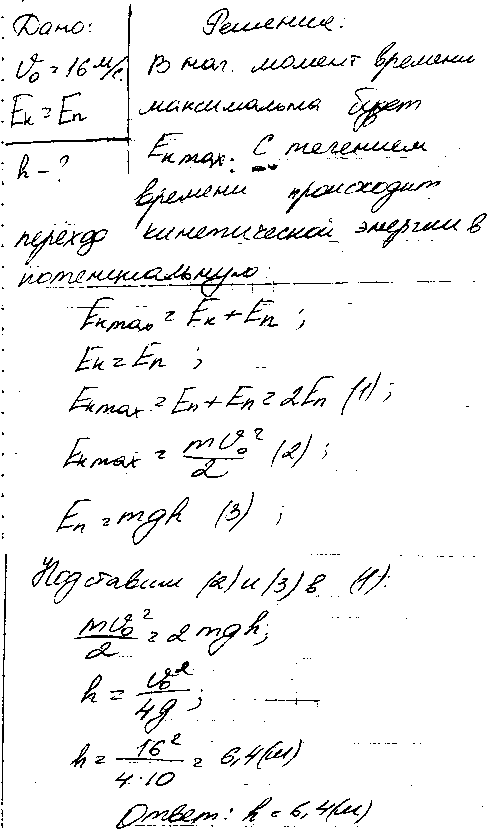 Дано: Решение:
v₀ = 16 м/с В нач. момент времени
Eк = Eп максимальна будет
h – ? Eк max. С течением
времени происходит
переход кинетической энергии в
потенциальную:
Eк max = Eк + Eп ;
Eк = Eп ;
Eк max = Eп + Eп = 2Eп (1) ;
Eк max = mv₀²/2 (2) ;
Eп = mgh (3) ;
Подставим (2) и (3) в (1):
mv₀²/2 = 2mgh;
h = v₀²/4g ;
h = 16²/4·10 = 6,4 (м)
Ответ: h = 6,4 (м)